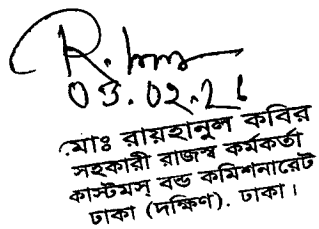 03.02.21
মোঃ রায়হানুল কবির
সহকারী রাজস্ব কর্মকর্তা
কাস্টমস্ বন্ড কমিশনারেট
ঢাকা (দক্ষিণ). ঢাকা।